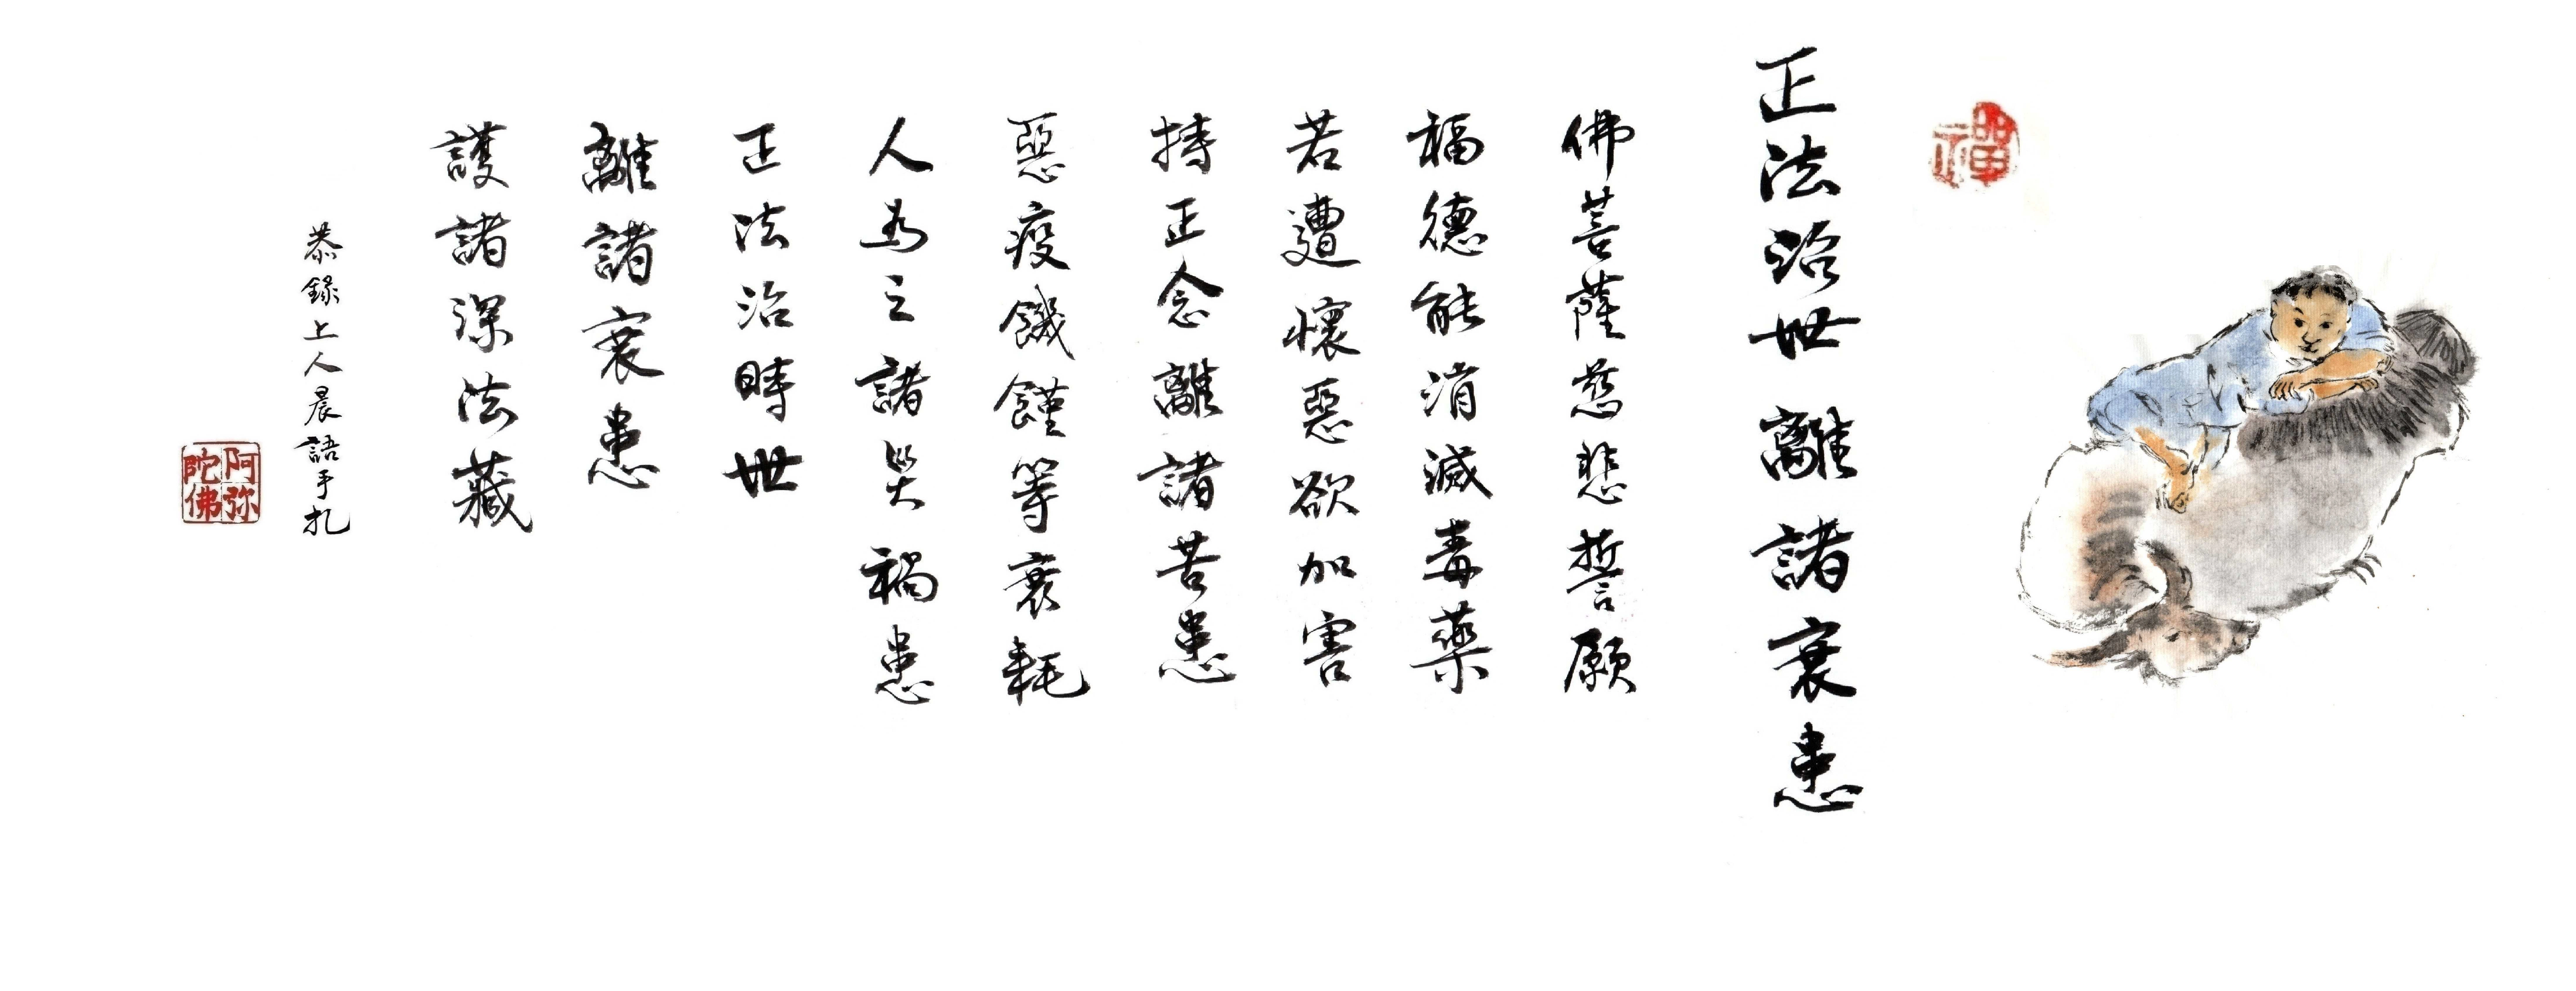 禪
正法治世離諸衰患
佛菩薩慈悲誓願
福德能消滅毒藥
若遭懷惡欲加害
持正念離諸苦患
惡疫饑饉等衰耗
人為之諸災禍患
正法治時世
離諸衰患
護諸深法藏
恭錄上人晨語手扎
阿弥陀佛